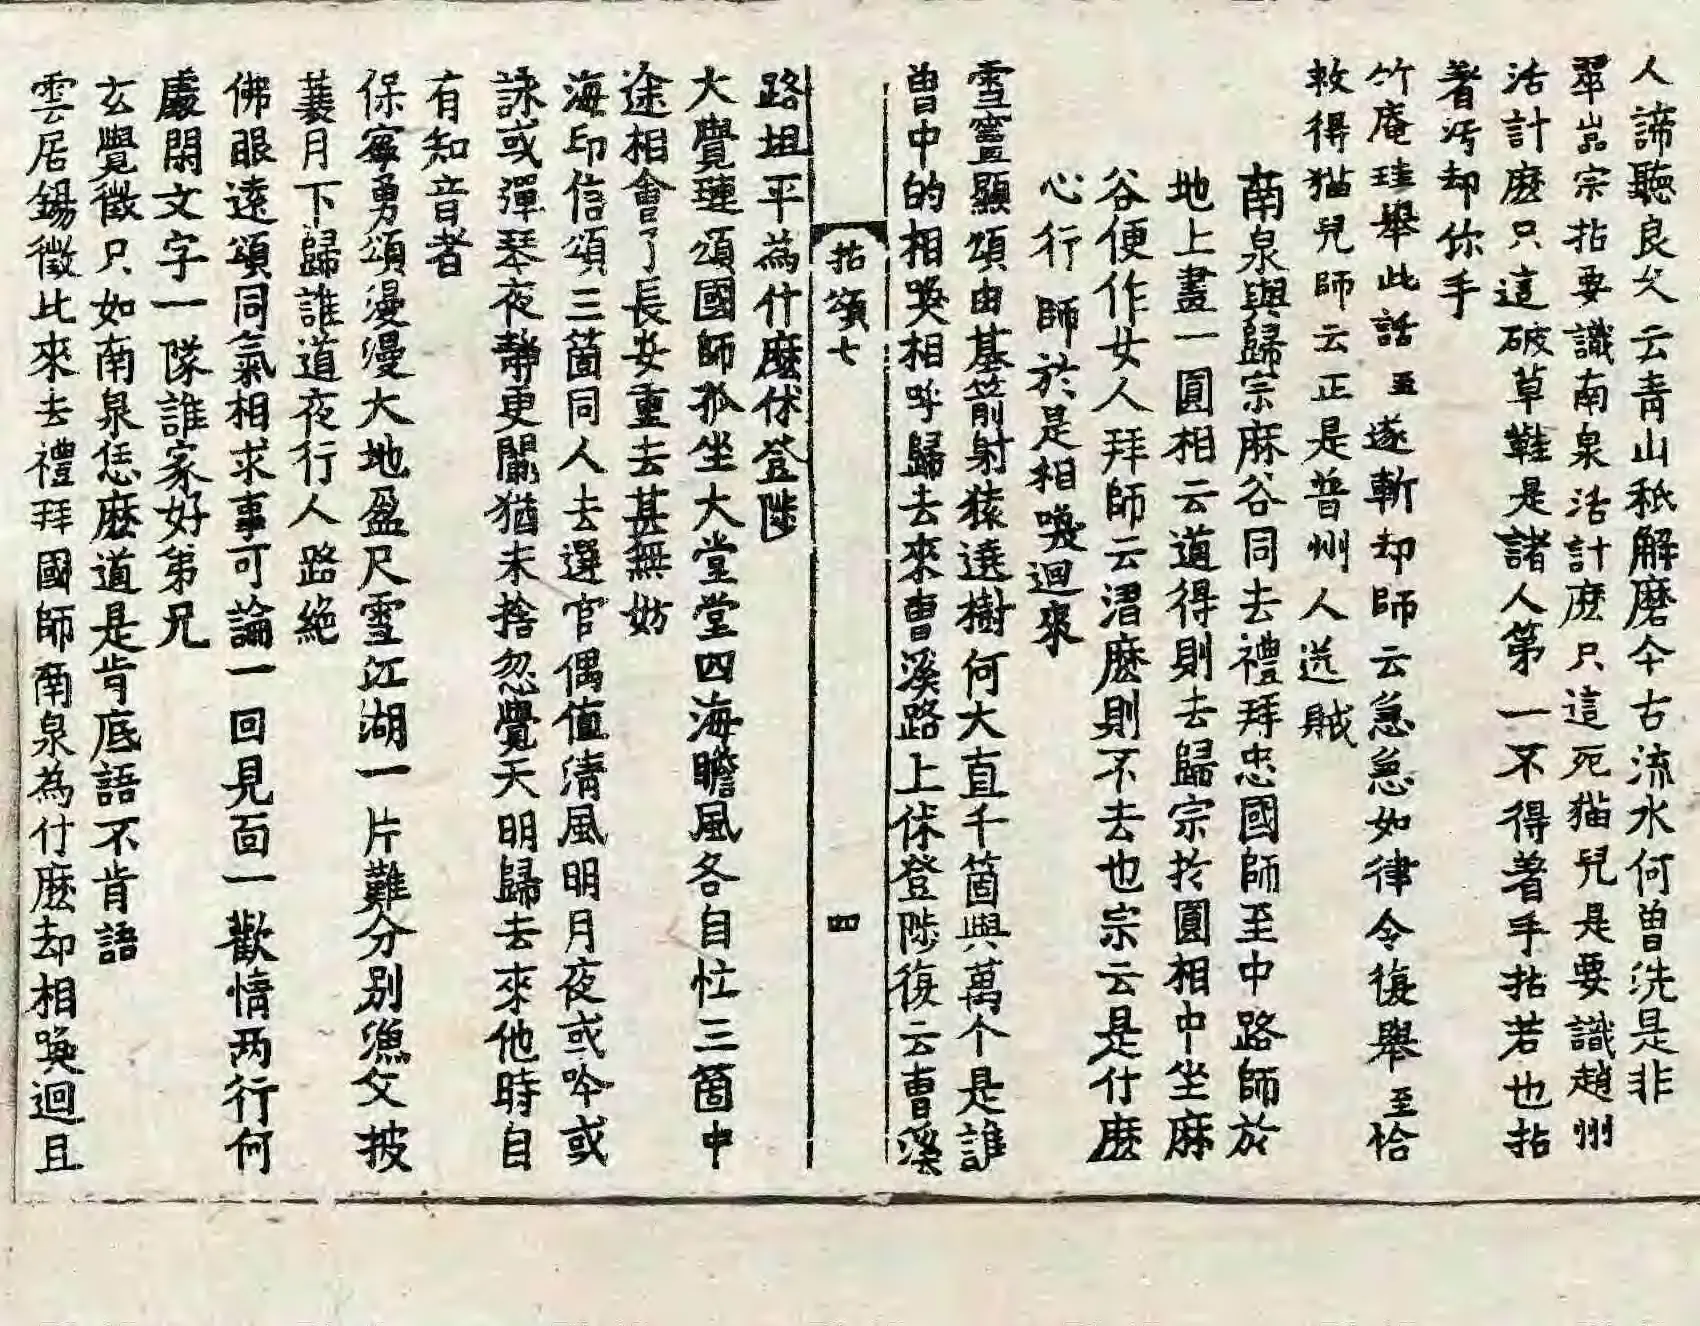 人諦聽良久云青山秖解磨今古流水何曾洗是非
翠嵓宗拈要識南泉活計麽只這死猫兒是要識趙州
活計麽只這破草鞋是諸人第一不得著手拈若也拈
著汚却你手
竹庵珪舉此話至遂斬却師云急急如律令復舉至恰
救得猫兒師云正是普州人送賊
南泉與歸宗麻谷同去禮拜忠國師至中路師於
地上畫一圓相云道得則去歸宗於圓相中坐麻
谷便作女人拜師云漝麽則不去也宗云是什麽
心行師於是相喚迴來
雪竇顯頌由基箭射猿遶樹何大直千箇與萬个是誰
曽中的相喚相呼歸去來曹溪路上休登陟復云曹溪
拈頌七
四
路坦平為什麽休登陟
大覺璉頌國師孤坐大堂堂四海瞻風各自忙三箇中
途相會了長安重去甚無妨
海印信頌三箇同人去選官偶值清風明月夜或吟或
詠或彈琴夜靜更闌猶未捨忽覺天明歸去來他時自
有知音者
保寧勇頌漫漫大地盈尺雪江湖一片難分別漁父披
蓑月下歸誰道夜行人路絶
佛眼遠頌同氣相求事可論一回見面一歡情两行何
處閑文字一隊誰家好弟兄
玄覺徵只如南泉恁麽道是肯底語不肯語
雲居錫徵比來去禮拜國師南泉為什麽却相喚迴且